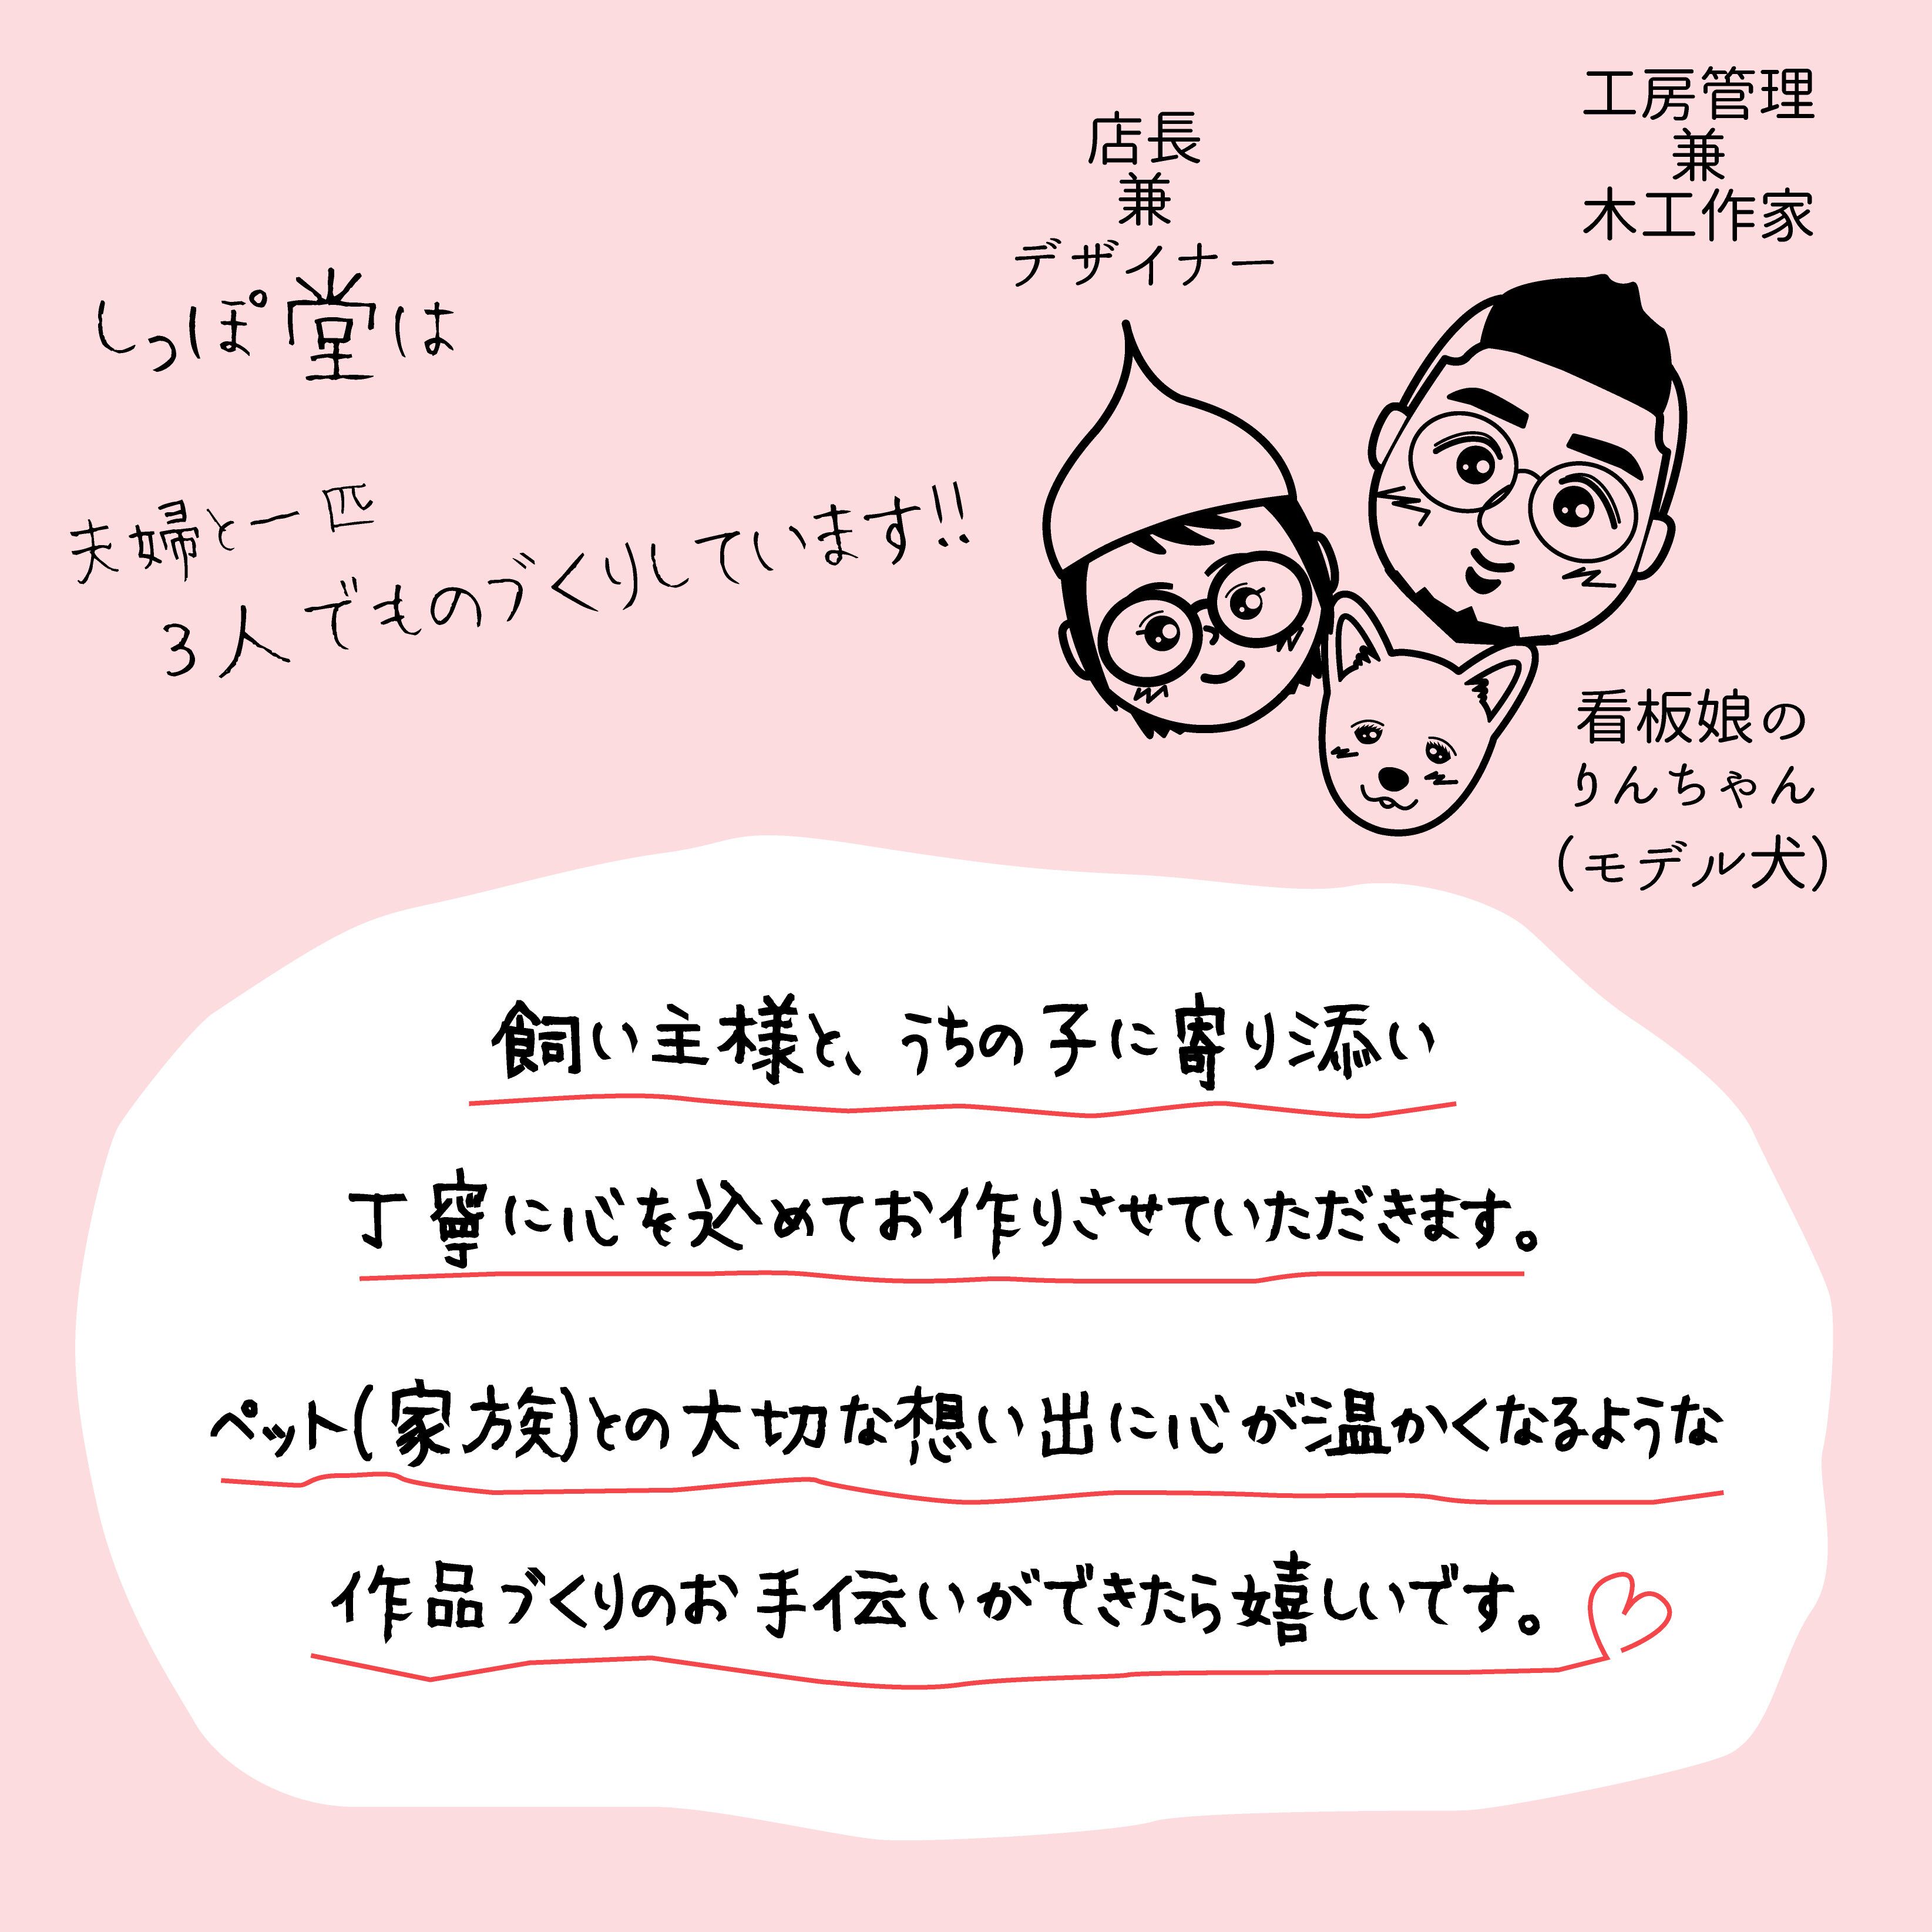 しっぽ堂は
夫婦と一匹
3人でものづくりしています!!
店長
兼
デザイナー
工房管理
兼
木工作家
看板娘の
りんちゃん
(モデル犬)
飼い主様と、うちの子に寄り添い
丁寧に心を込めてお作りさせていただきます。
ペット(家族)との大切な想い出に心が温かくなるような
作品づくりのお手伝いができたら嬉しいです。